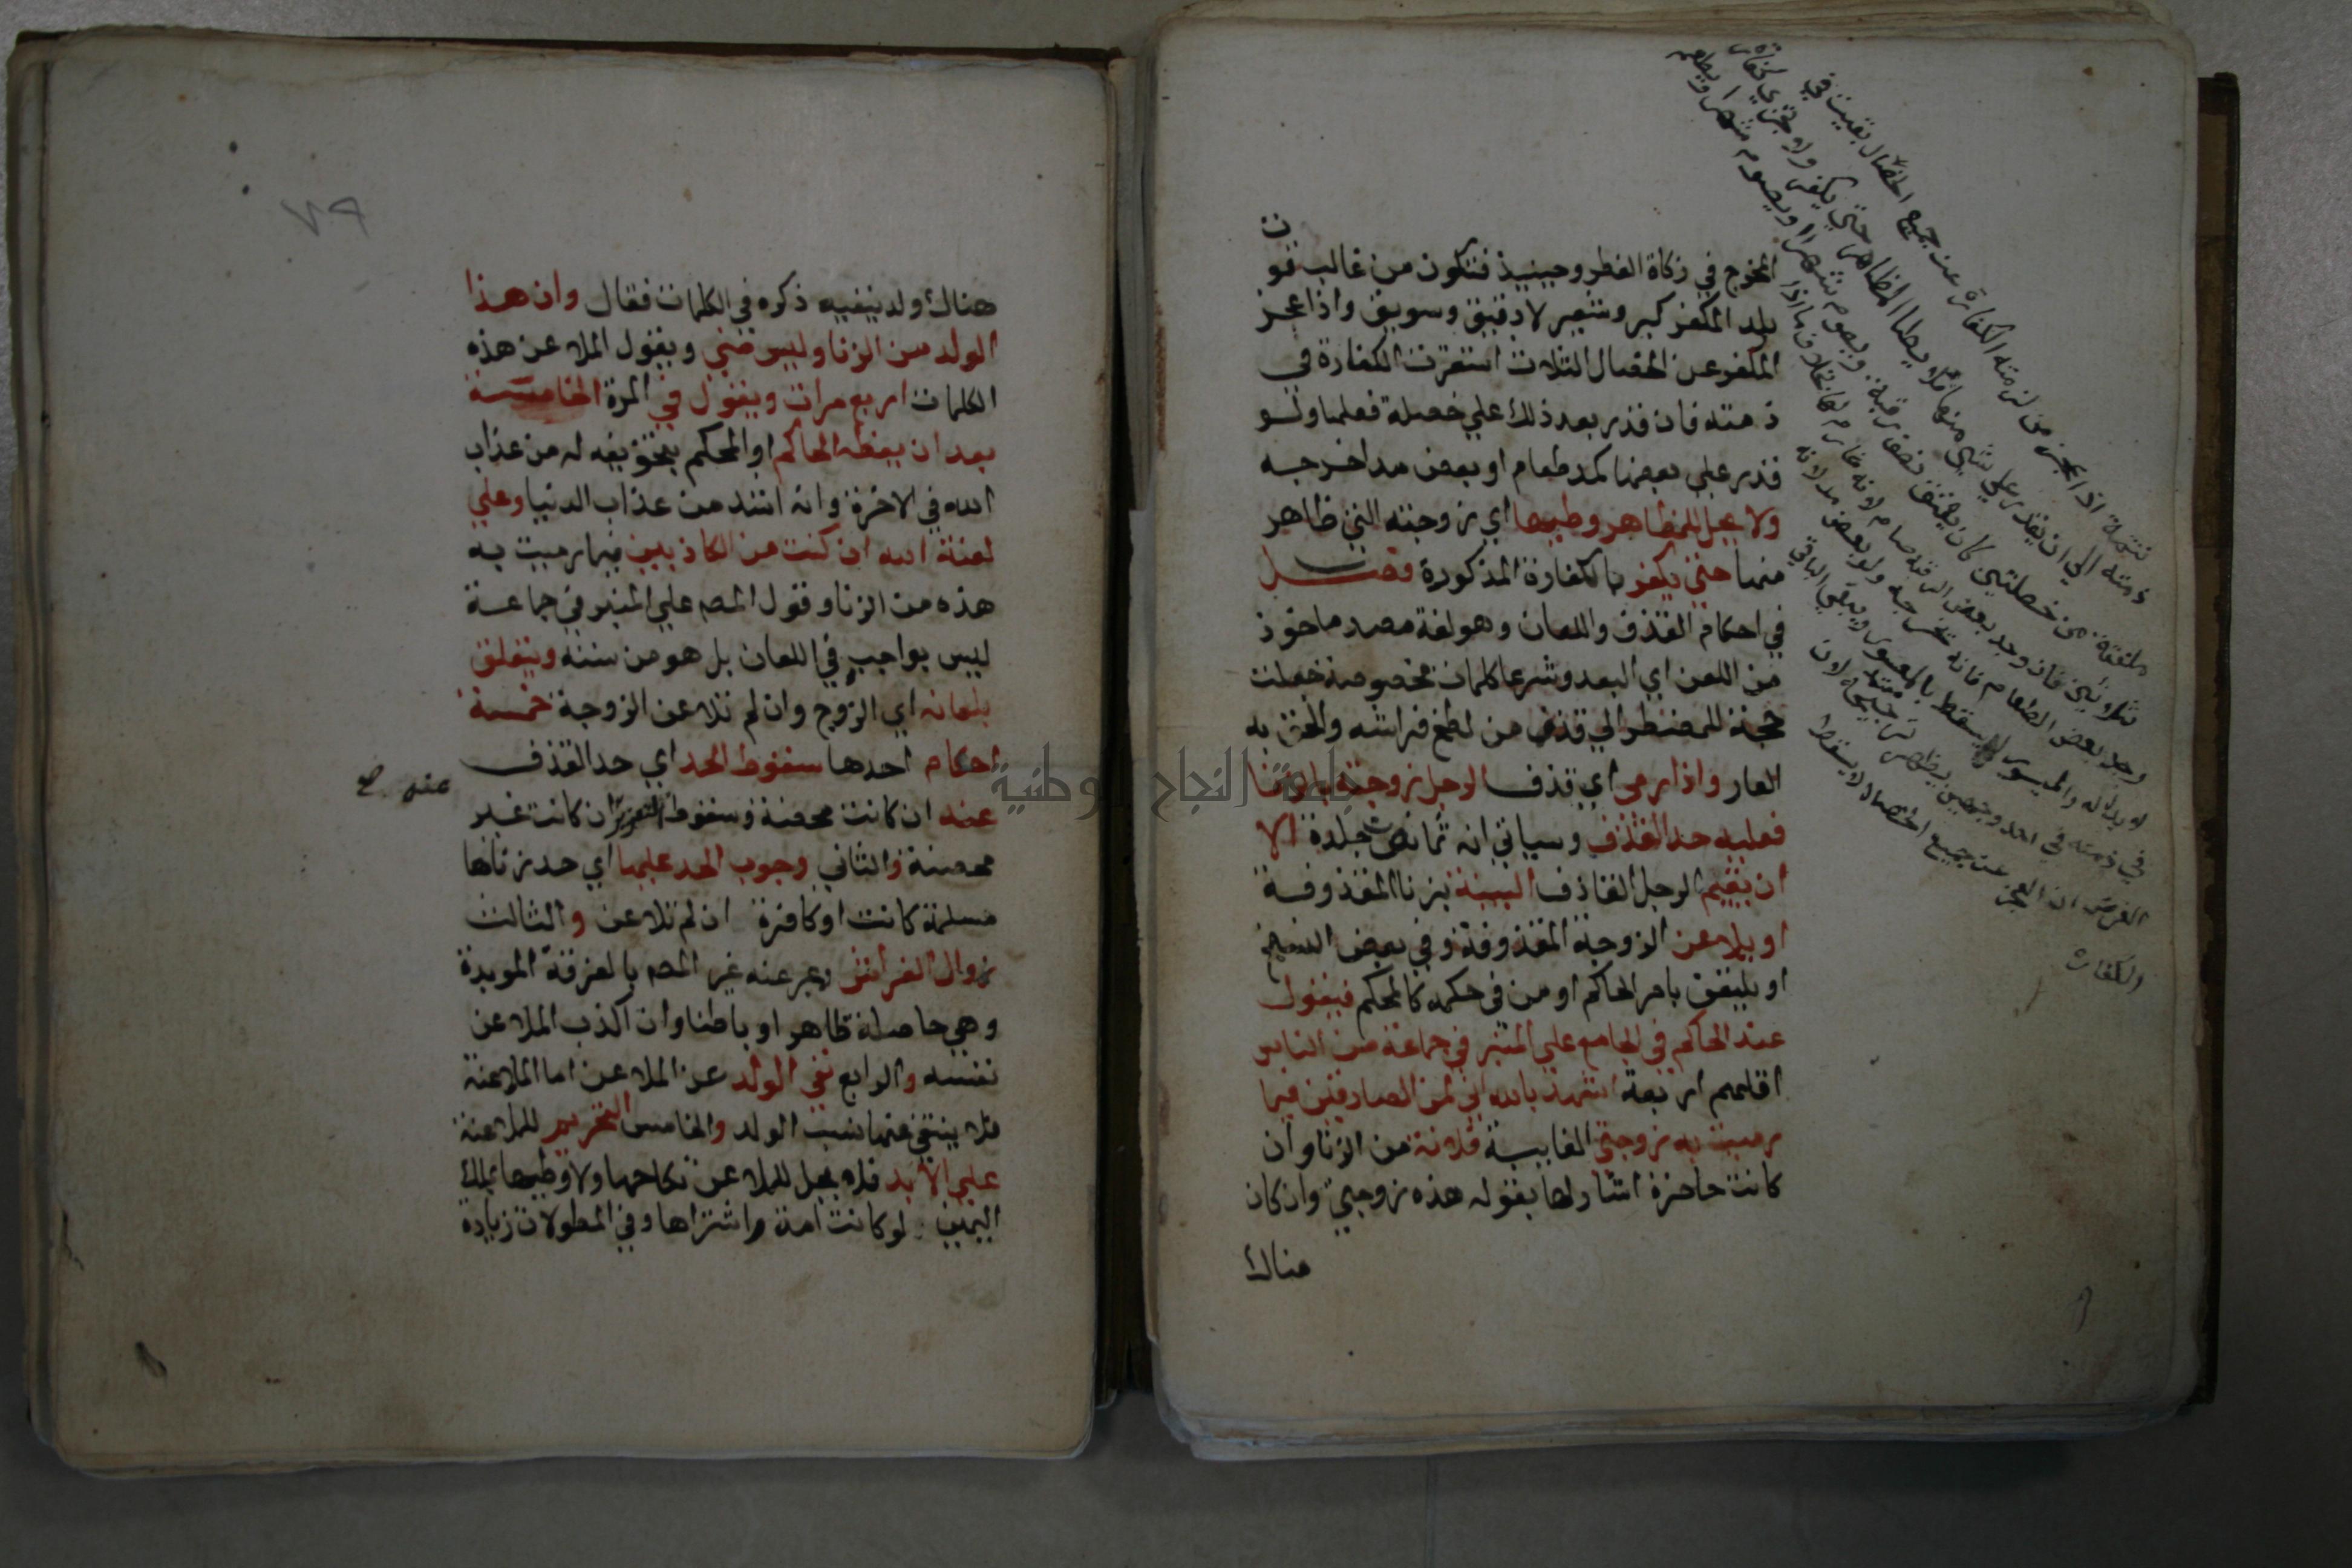 المخرج في زكاة الفطر وحينيذ فتكون من غالب قوت
بلد المكفر كبر وشعير لا دقيق وسويق واذا عجز
المكفر عن الخصال الثلاث استقرت الكفارة في
ذمته فان قدر بعد ذلك علي خصلة فعلها ولو
قدر علي بعضها كمد طعام او بعض مد اخرجه
ولا يحل للمظاهر وطيها اي زوجته التي ظاهر
منها حتي يكفر بالكفارة المذكورة فصل
في احكام القذف واللعان وهو لغة مصدر ماخوذ
من اللعن اي البعد وشرعا كلمات مخصوصة جعلت
حجة للمضطر الي قذف من لطخ فراشه والحق به
العار واذا رمي اي قذف الرجل زوجته بالزنا
فعليه حد القذف وسياتي انه ثمانون جلدة الا
ان يقيم الرجل القاذف البينة بزنا المقذوفة
او يلاعن الزوجة المقذوفة وفي بعض النسخ
او يلتعن بامر الحاكم او من في حكمه كالمحكم فيقول
عند الحاكم في الجامع علي المنبر في جماعة من الناس
اقلهم اربعة اشهد بالله اني لمن الصادقين فيما
رميت به زوجتي الغايبة فلانة من الزنا وان
كانت حاضرة اشار لها بقوله هذه زوجتي وان كان
هناك
تتمة اذا عجز من لزمته الكفارة عن جميع الخصال بقيت في
ذمته الي ان يقدر علي شي منها فلا يطا المظاهر حتي يكفر ولا تجزي كفارة
ملفقة من خصلتين كان يعتق نصف رقبة ويصوم شهرا او يصوم شهرا ويطعم
ثلاثين فان وجد بعض الرقبة صام لانه عادم لها بخلاف ما اذا
وجد بعض الطعام فانه يخرجه ولو بعض مد لانه
لا بدل له والميسور لا يسقط بالمعسور ويبقي الباقي
في ذمته في احد وجهين يظهر ترجيحه لان
الفرض ان العجز عن جميع الخصال لا يسقط
الكفارة
٧٩
هناك ولد ينفيه ذكره في الكلمات فقال وان هذا
الولد من الزنا وليس مني ويقول الملاعن هذه
الكلمات اربع مرات ويقول في المرة الخامسة
بعد ان يعظه الحاكم او المحكم بتخويفه له من عذاب
الله في الاخرة وانه اشد من عذاب الدنيا وعلي
لعنة الله ان كنت من الكاذبين فيما رميت به
هذه من الزنا وقول المصم علي المنبر في جماعة
ليس بواجب في اللعان بل هو من سننه ويتعلق
بلعانه اي الزوج وان لم تلاعن الزوجة خمسة
احكام احدها سقوط الحد اي حد القذف
عنه صح
عنه ان كانت محصنة وسقوط التعزير ان كانت غير
محصنة والثاني وجوب الحد عليها اي حد زناها
مسلمة كانت او كافرة ان لم تلاعن والثالث
زوال الفراش وعبر عنه غير المصم بالفرقة الموبدة
وهي حاصلة ظاهرا وباطنا وان اكذب الملاعن
نفسه والرابع نفي الولد عن الملاعن اما الملاعنة
فلا ينتفي عنها نسب الولد والخامس التحريم للملاعنة
علي الابد فلا يحل للملاعن نكاحها ولا وطيها بملك
اليمين لو كانت امة واشتراها وفي المطولات زيادة
جامعة النجاح الوطنية